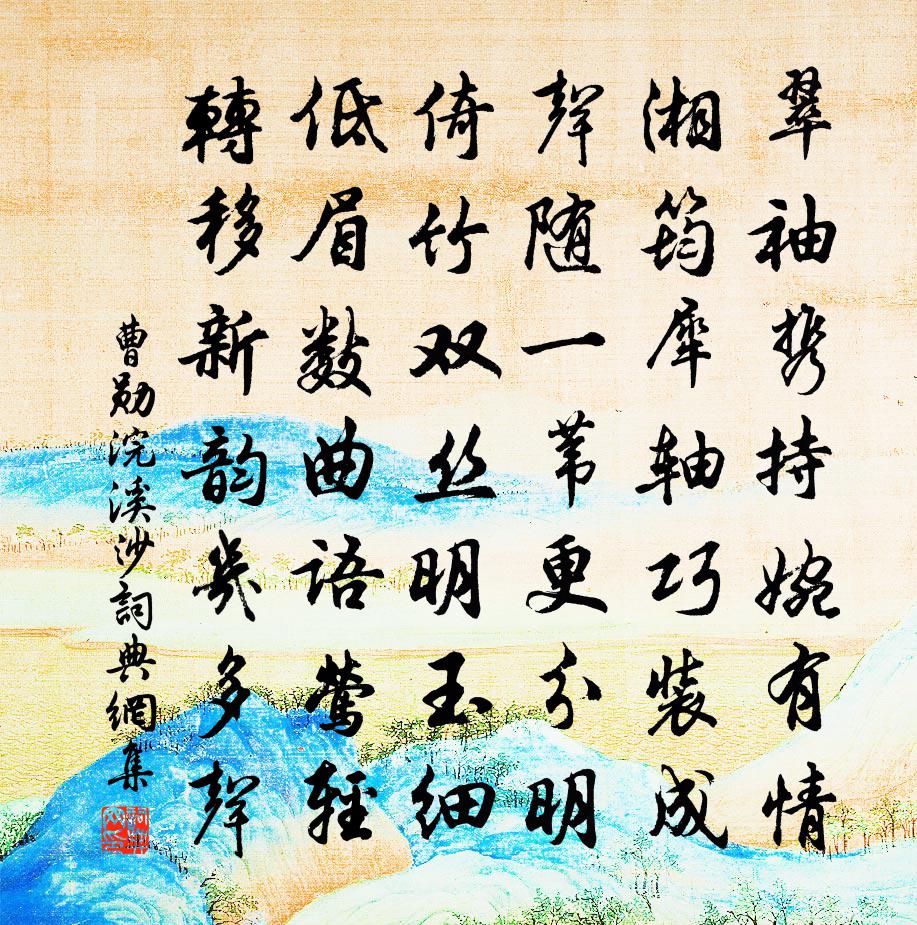 翠袖携持婉有情
湘筠犀轴巧装成
聲随一苇更分明
倚竹双丝明玉细
低眉数曲语莺轻
轉移新韵幾多聲
曹勋浣溪沙詞典網集